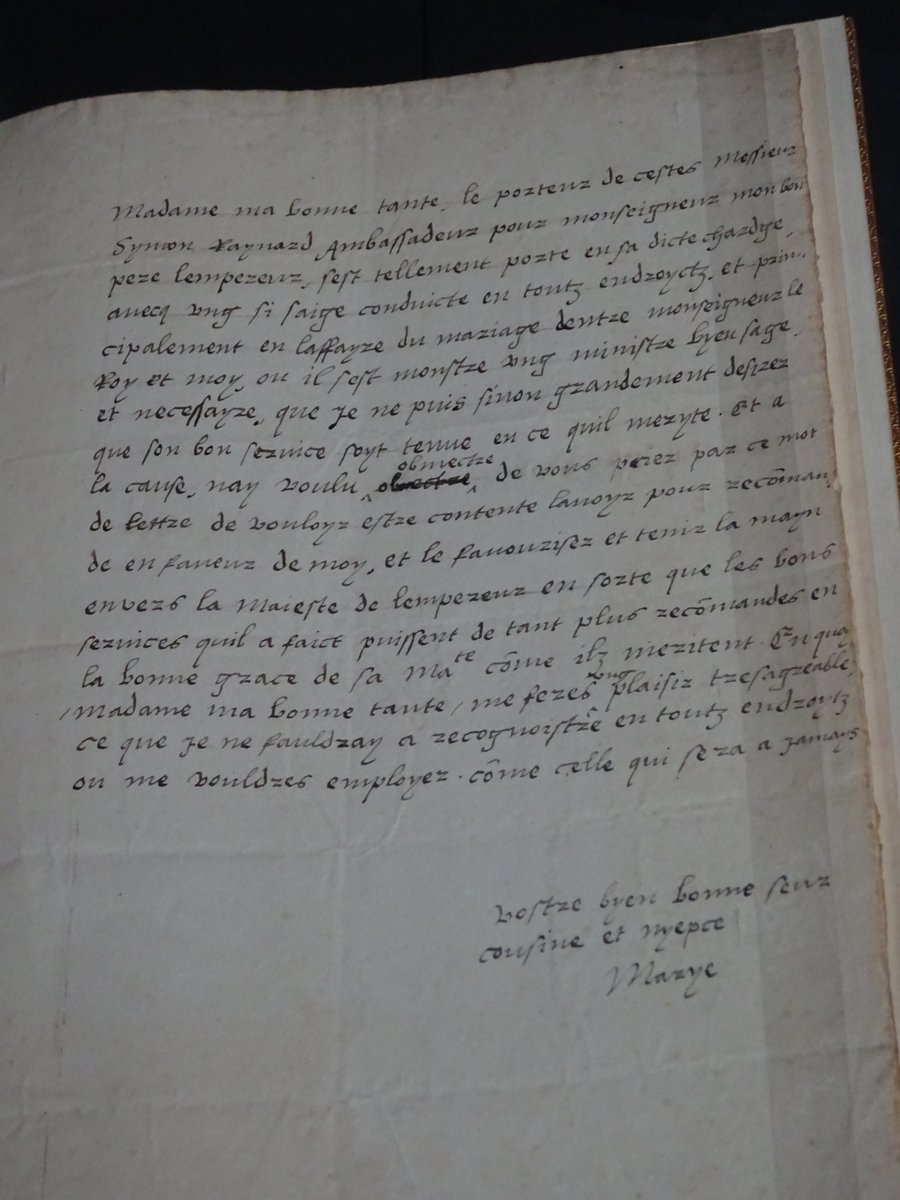 Madame ma bonne tante, le porteur de cestes Messieur
Symon Raynard Ambassadeur pour monseigneur mon bon
pere lempereur, sest tellement porte en sa dicte chardge,
avecq ung si saige conduicte en toutz endroyctz, et prin-
cipalement en laffayre du mariage dentre monseigneur le
Roy et moy, ou il sest monstre ung ministre byen sage,
et necessayre, que je ne puis sinon grandement desirer
que son bon service soyt tenue en ce quil meryte. Et a
la cause, nay voulu obmectre de vous prier par ce mot
de lettre de vouloyr estre contente lavoyr pour recōman
de en faveur de moy, et le favourizer et tenir la mayn
envers la Maieste de lempereur en sorte que les bons
services quil a faict puissent de tant plus recōmandes en
la bonne grace de sa Ma^te cōme ilz meritent. En quoy
/Madame ma bonne tante/ me feres ung plaisir tresagreable,
ce que je ne fauldray a recognoistre en toutz endroytz
ou me vouldres employer. cōme celle qui sera a jamays
vostre byen bonne seur
cousine et nyepce
Marye